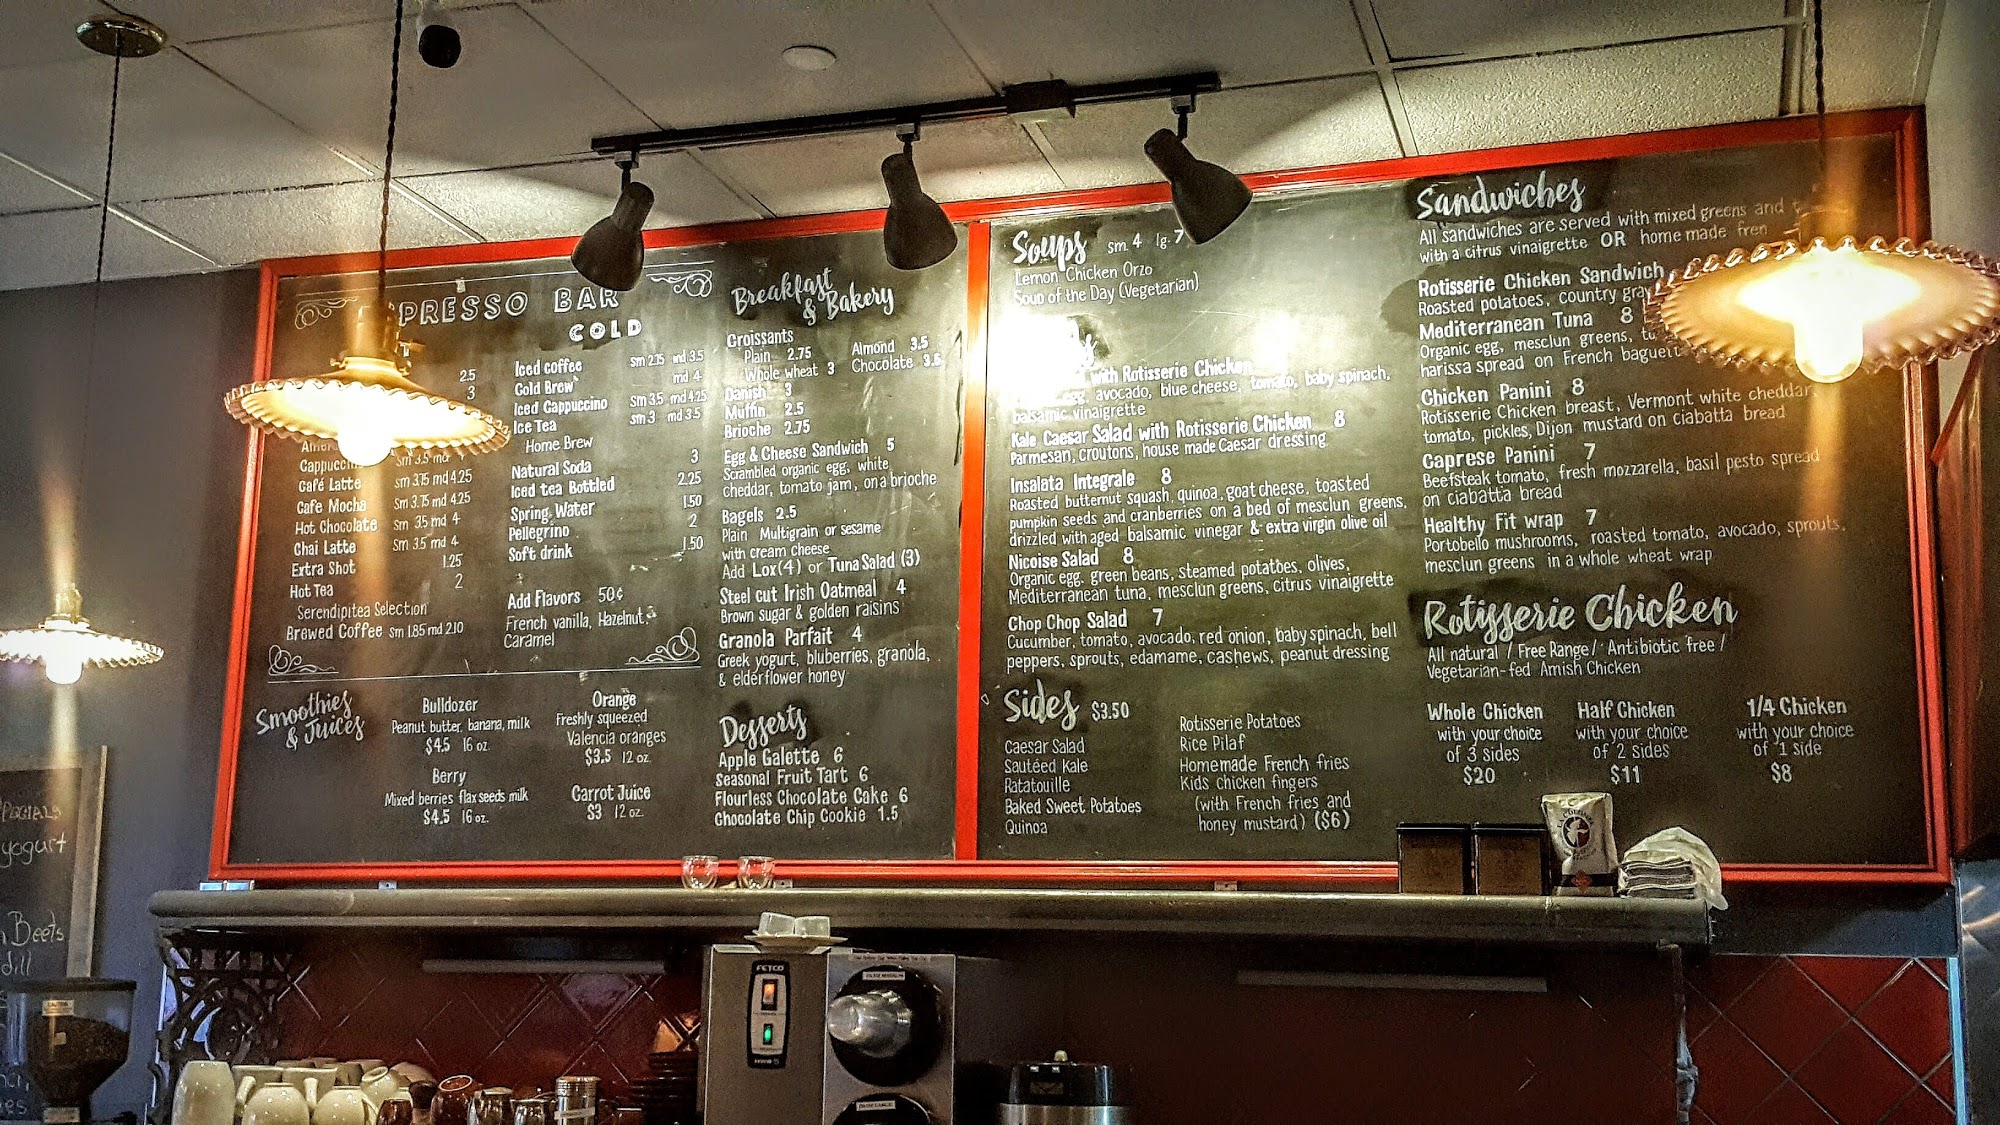 PRESSO BAR
COLD
2.5
3
Cappuccin
sm 3.5 md
Café Latte sm 3.75 md 4.25
Cafe Mocha sm 3.75 md 4.25
Hot Chocolate sm 3.5 md 4
Chai Latte sm 3.5 md 4
Extra Shot 1.25
Hot Tea 2
Serendipitea Selection
Brewed Coffee sm 1.85 md 2.10
Iced coffee sm 2.75 md 3.5
Cold Brew md 4
Iced Cappuccino sm 3.5 md 4.25
Ice Tea sm 3 md 3.5
Home Brew
Natural Soda 3
Iced tea Bottled 2.25
Spring Water 1.50
Pellegrino 2
Soft drink 1.50
Add Flavors 50¢
French vanilla, Hazelnut,
Caramel
Smoothies
& Juices
Bulldozer
Peanut butter, banana, milk
$4.5 16 oz.
Berry
Mixed berries flaxseeds milk
$4.5 16 oz.
Orange
Freshly squeezed
Valencia oranges
$3.5 12 oz.
Carrot Juice
$3 12 oz.
Breakfast
& Bakery
Croissants
Plain 2.75 Almond 3.5
Whole wheat 3 Chocolate 3.5
Danish 3
Muffin 2.5
Brioche 2.75
Egg & Cheese Sandwich 5
Scrambled organic egg, white
cheddar, tomato jam, on a brioche
Bagels 2.5
Plain Multigrain or sesame
with cream cheese
Add Lox (4) or Tuna Salad (3)
Steel cut Irish Oatmeal 4
Brown sugar & golden raisins
Granola Parfait 4
Greek yogurt, bluberries, granola,
& elderflower honey
Desserts
Apple Galette 6
Seasonal Fruit Tart 6
Flourless Chocolate Cake 6
Chocolate Chip Cookie 1.5
Soups sm. 4 lg. 7
Lemon Chicken Orzo
Soup of the Day (Vegetarian)
with Rotisserie Chicken
egg, avocado, blue cheese, tomato, baby spinach,
balsamic vinaigrette
Kale Caesar Salad with Rotisserie Chicken 8
Parmesan, croutons, house made Caesar dressing
Insalata Integrale 8
Roasted butternut squash, quinoa, goat cheese, toasted
pumpkin seeds and cranberries on a bed of mesclun greens,
drizzled with aged balsamic vinegar & extra virgin olive oil
Nicoise Salad 8
Organic egg, green beans, steamed potatoes, olives,
Mediterranean tuna, mesclun greens, citrus vinaigrette
Chop Chop Salad 7
Cucumber, tomato, avocado, red onion, baby spinach, bell
peppers, sprouts, edamame, cashews, peanut dressing
Sides $3.50
Caesar Salad
Sautéed Kale
Ratatouille
Baked Sweet Potatoes
Quinoa
Rotisserie Potatoes
Rice Pilaf
Homemade French fries
Kids chicken fingers
(with French fries and
honey mustard) ($6)
Sandwiches
All sandwiches are served with mixed greens and
with a citrus vinaigrette OR home made fren
Rotisserie Chicken Sandwich
Roasted potatoes, country gra
Mediterranean Tuna 8
Organic egg, mesclun greens,
harissa spread on French baguett
Chicken Panini 8
Rotisserie Chicken breast, Vermont white cheddar,
tomato, pickles, Dijon mustard on ciabatta bread
Caprese Panini 7
Beefsteak tomato, fresh mozzarella, basil pesto spread
on ciabatta bread
Healthy Fit wrap 7
Portobello mushrooms, roasted tomato, avocado, sprouts,
mesclun greens in a whole wheat wrap
Rotisserie Chicken
All natural / Free Range / Antibiotic free /
Vegetarian-fed Amish Chicken
Whole Chicken
with your choice
of 3 sides
$20
Half Chicken
with your choice
of 2 sides
$11
1/4 Chicken
with your choice
of 1 side
$8
yogurt
Beets
dill
FETCO